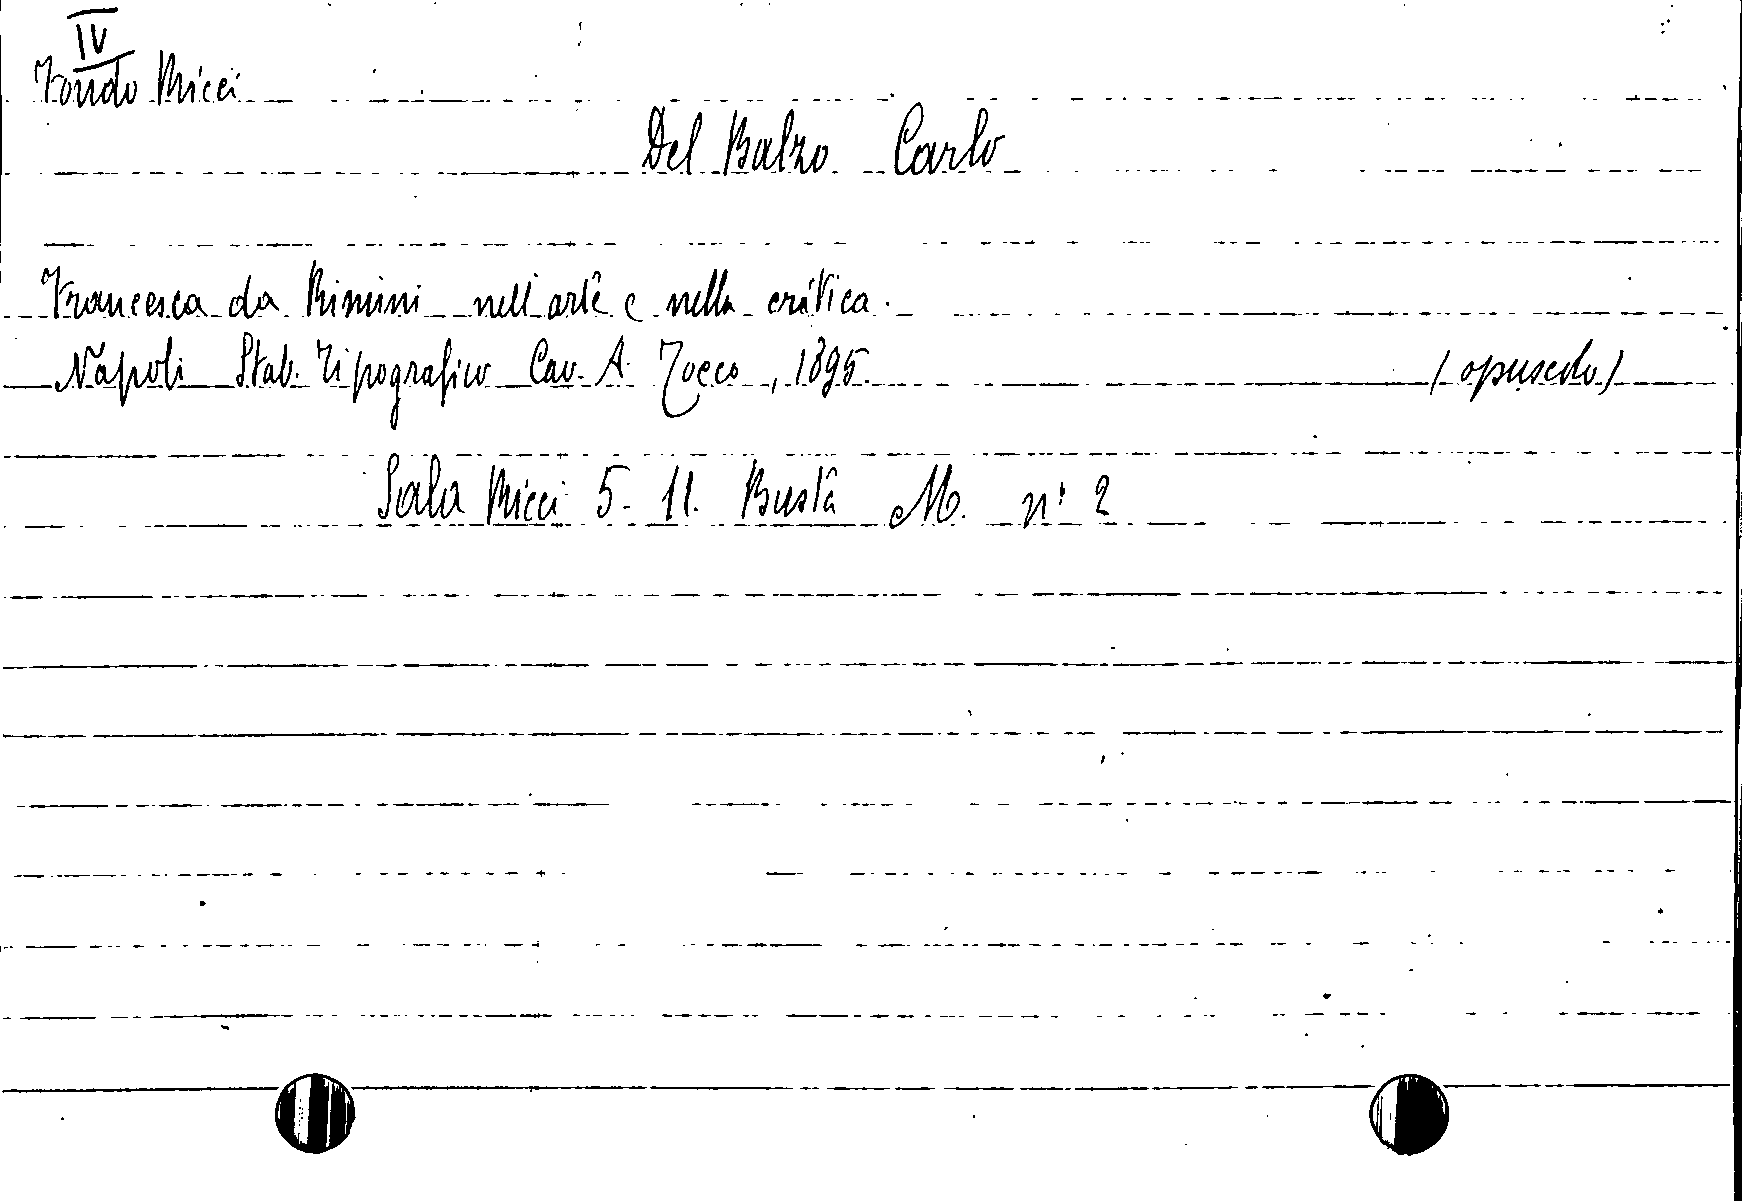 IV
Fondo Ricci
Del Balzo Carlo
Francesca da Rimini nell'arte e nella critica.
Napoli Stab. Tipografico Cav. A. Tocco, 1895. (opuscolo)
Sala Ricci 5. 11. Busta M. n° 2